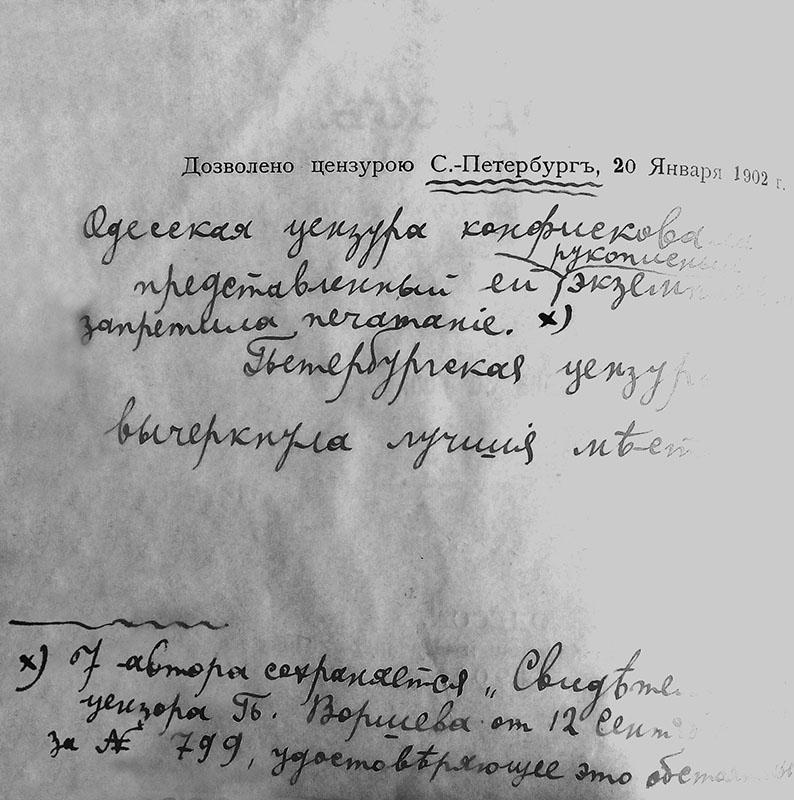 Дозволено цензурою С.-Петербургъ, 20 Января 1902 г.
Одесская цензура конфискова
рукописны
представленный ей экземп
запретила печатаніе. х)
Петербургская цензур
вычеркнула лучшія мѣст
х) У автора сохраняется „Свидѣте
цензора П. Воршева от 12 Сент
за № 799, удостовѣряющее это обстоят